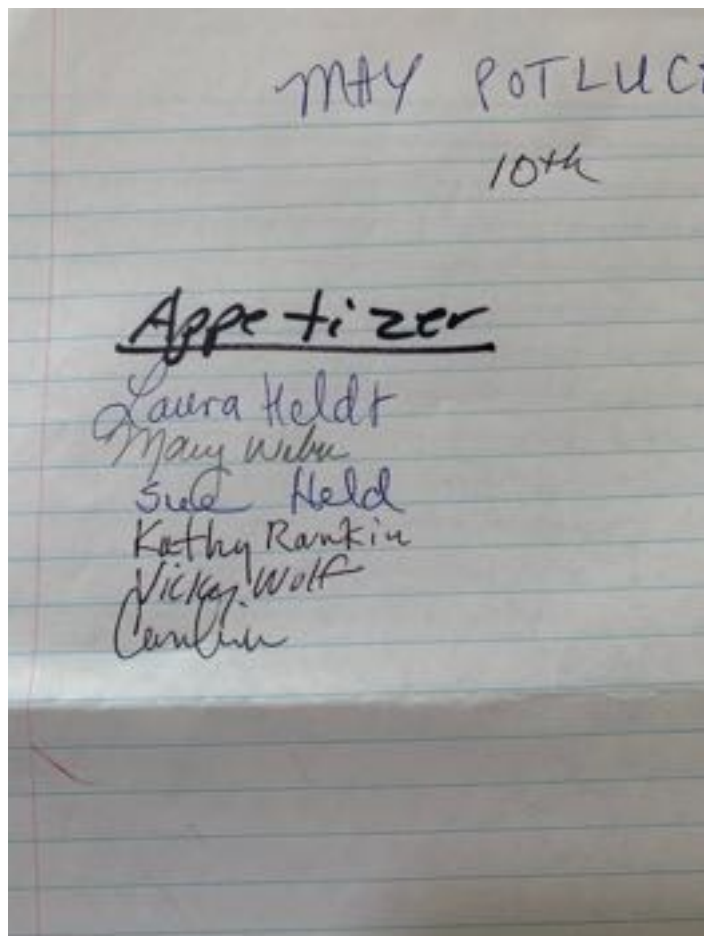 MAY POTLUC
10th
Appetizer
Laura Heldt
Mary Weber
Sue Held
Kathy Rankin
Vicky Wolf